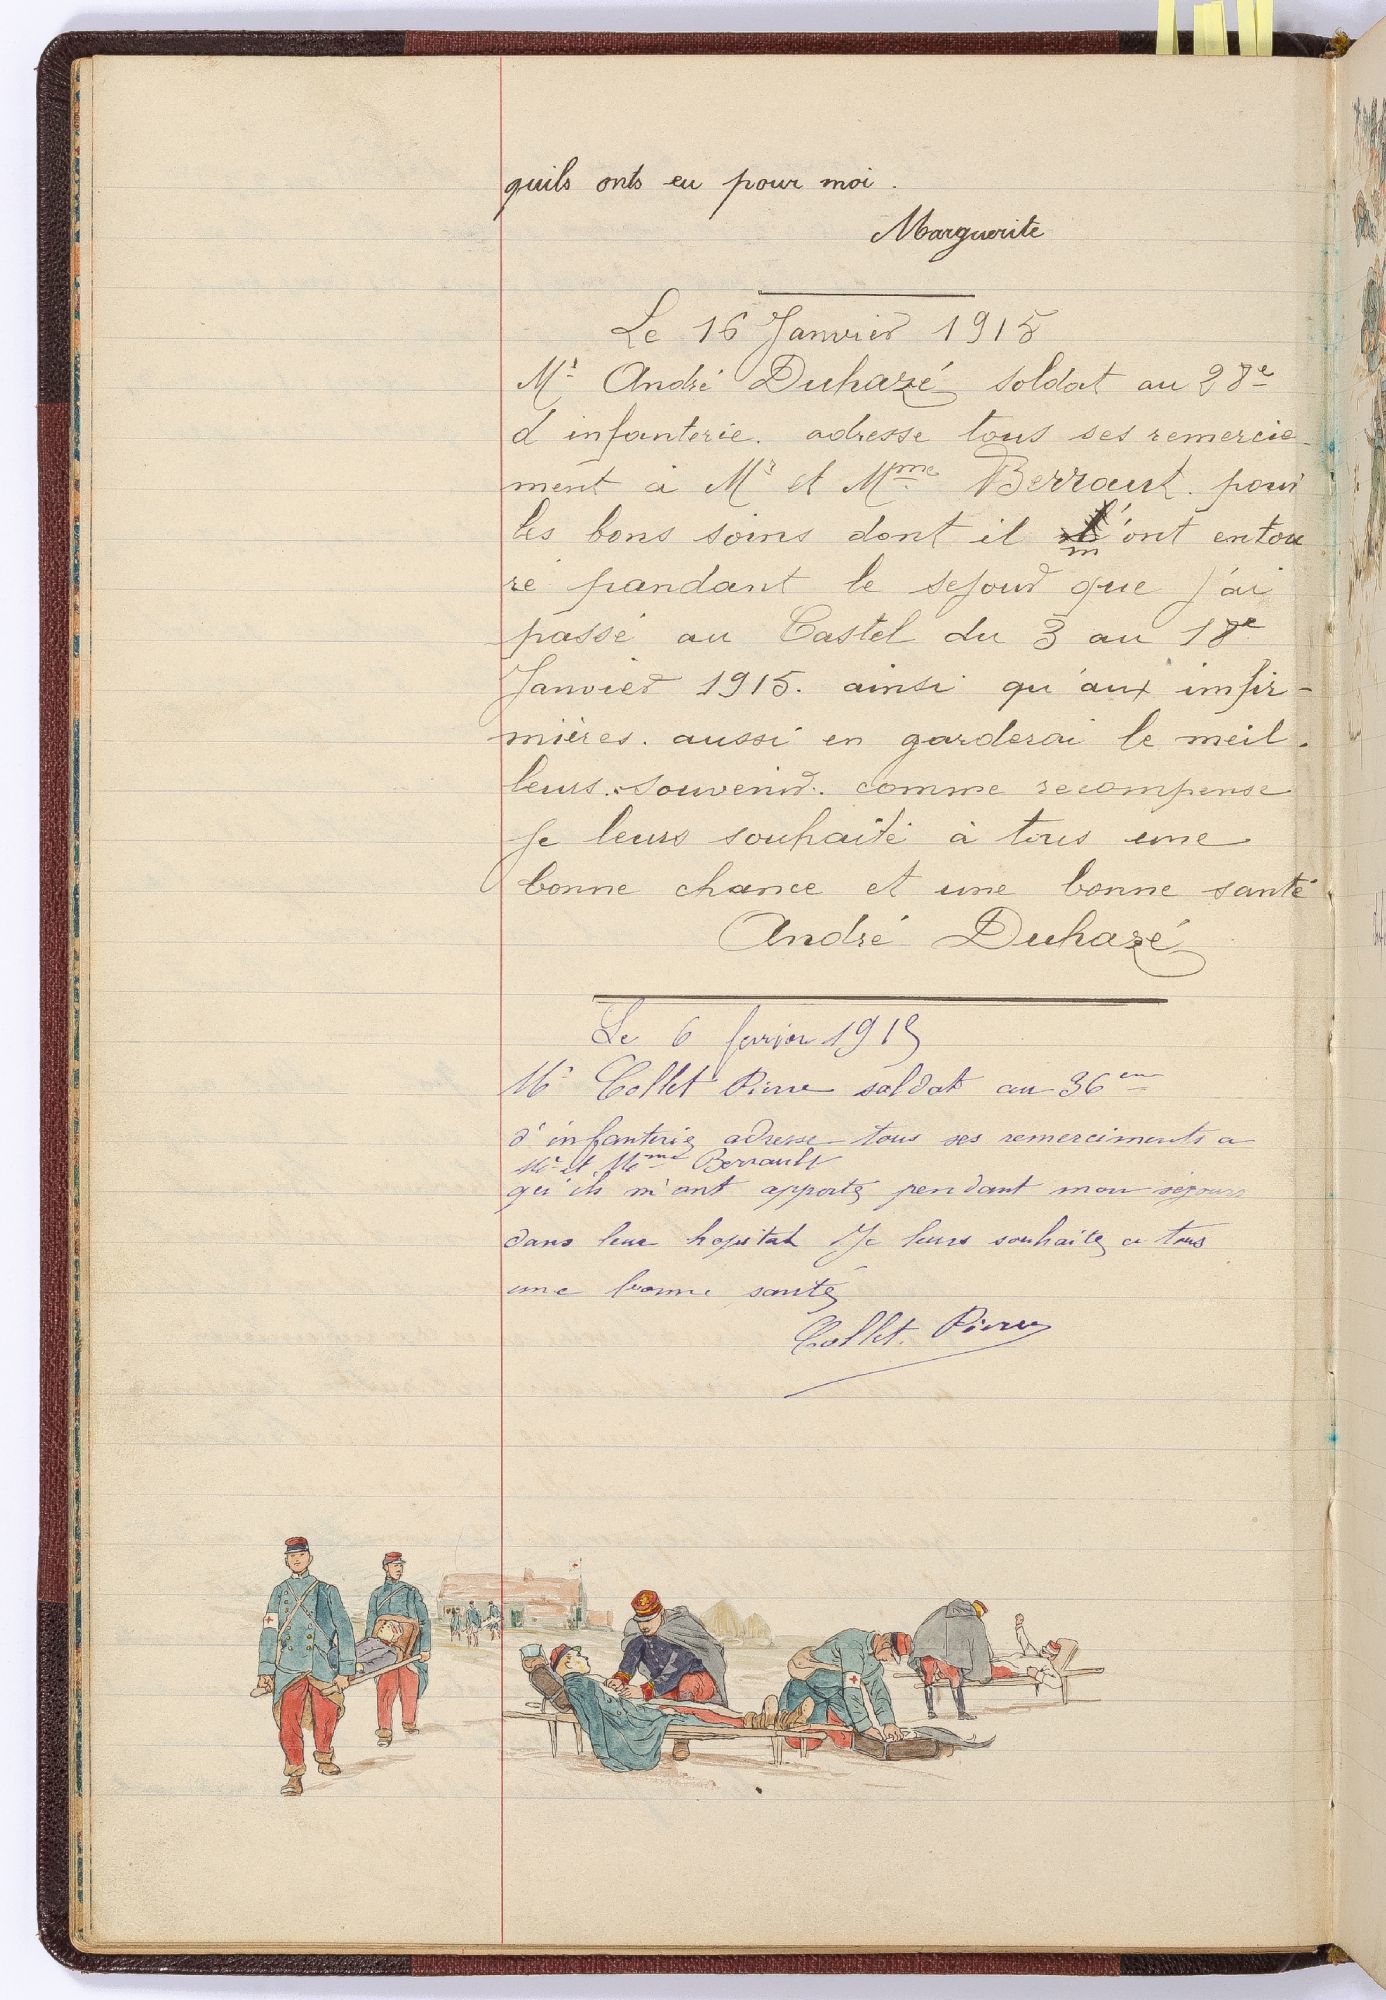 quils onts eu pour moi.
Marguerite
Le 16 Janvier 1915
Mr André Duhazé soldat au 28e
d infanterie. adresse tous ses remercie-
ment à Mr et Mme Berraut. pour
les bons soins dont il m'ont entou
ré pandant le sejour que j'ai
passé au Castel du 3 au 18e
Janvier 1915. ainsi qu'aux infir-
mières. aussi en garderai le meil-
leurs souvenir. comme recompense
Je leurs souhaite à tous une
bonne chance et une bonne santé
André Duhazé
Le 6 fevrier 1915
Mr Collet Pierre soldat au 36em
d'infanterie adresse tous ses remerciments a
Mr et Mme Berrault
qu'ils m'ont apporté pendant mon séjours
dans leur hopital Je leurs souhaite a tous
une bonne santé
Collet. Pierre